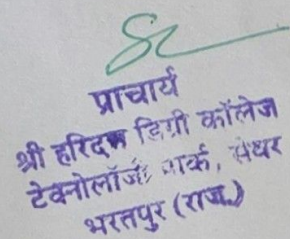 प्राचार्य
श्री हरिदास डिग्री कॉलेज
टेक्नोलॉजी पार्क, सेवर
भरतपुर (राज.)